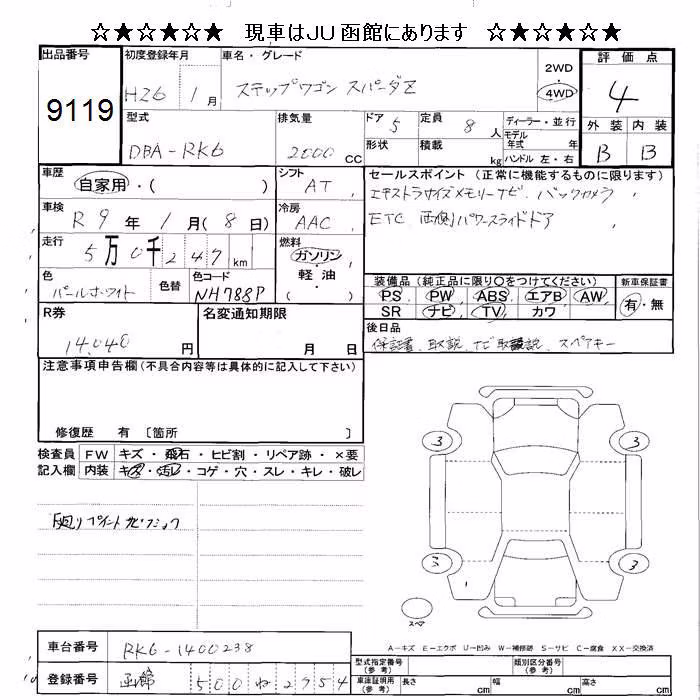 ☆★☆★☆★ 現車はJU函館にあります ☆★☆★☆★
出品番号
9119
初度登録年月
H26 1月
車名・グレード
ステップワゴン スパーダZ
2WD
4WD
評価点
4
外装 内装
B B
型式
DBA-RK6
排気量
2000 CC
ドア 5
定員 8 人
ディーラー・並行
モデル年式 年
ハンドル 左・右
形状
積載 kg
車歴
自家用・( )
シフト
AT
セールスポイント (正常に機能するものに限ります)
エキストラサイズメモリーナビ、バックカメラ、
ETC 両側パワースライドドア
車検
R 9 年 1 月 (8 日)
冷房
AAC
走行
5万0千247 km
燃料
ガソリン・
軽・油
( )
色
パールホワイト
色替
色コード
NH788P
装備品 (純正品に限り○をつけてください)
PS PW ABS エアB AW
SR ナビ TV カワ
新車保証書
有・無
R券
14,040 円
名変通知期限
月 日
後日品
保証書、取説、ナビ取説、スペアキー
注意事項申告欄 (不具合内容等は具体的に記入して下さい)
修復歴 有 〔箇所 〕
検査員記入欄
FW キズ・飛石・ヒビ割・リペア跡・×要
内装 キズ・汚レ・コゲ・穴・スレ・キレ・破レ
3 3
3 3
スペア
A-キズ E-エクボ U-凹み W-補修跡 S-サビ C-腐食 XX-交換済
車台番号
RK6-1400238
登録番号
函館 500 ね 2754
型式指定番号(参考)
類別区分番号(参考)
車庫証明用(参考)
長さ cm
幅 cm
高さ cm